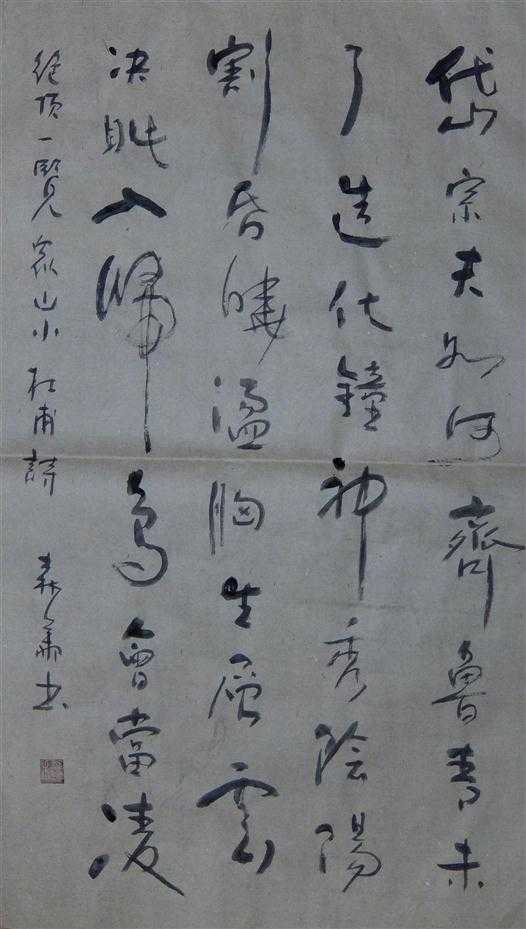 岱宗夫如何齊魯青未
了造化鐘神秀陰陽
割昏曉盪胸生層雲
决眦入歸鳥會當凌
絕頂一覽衆山小 杜甫詩 书